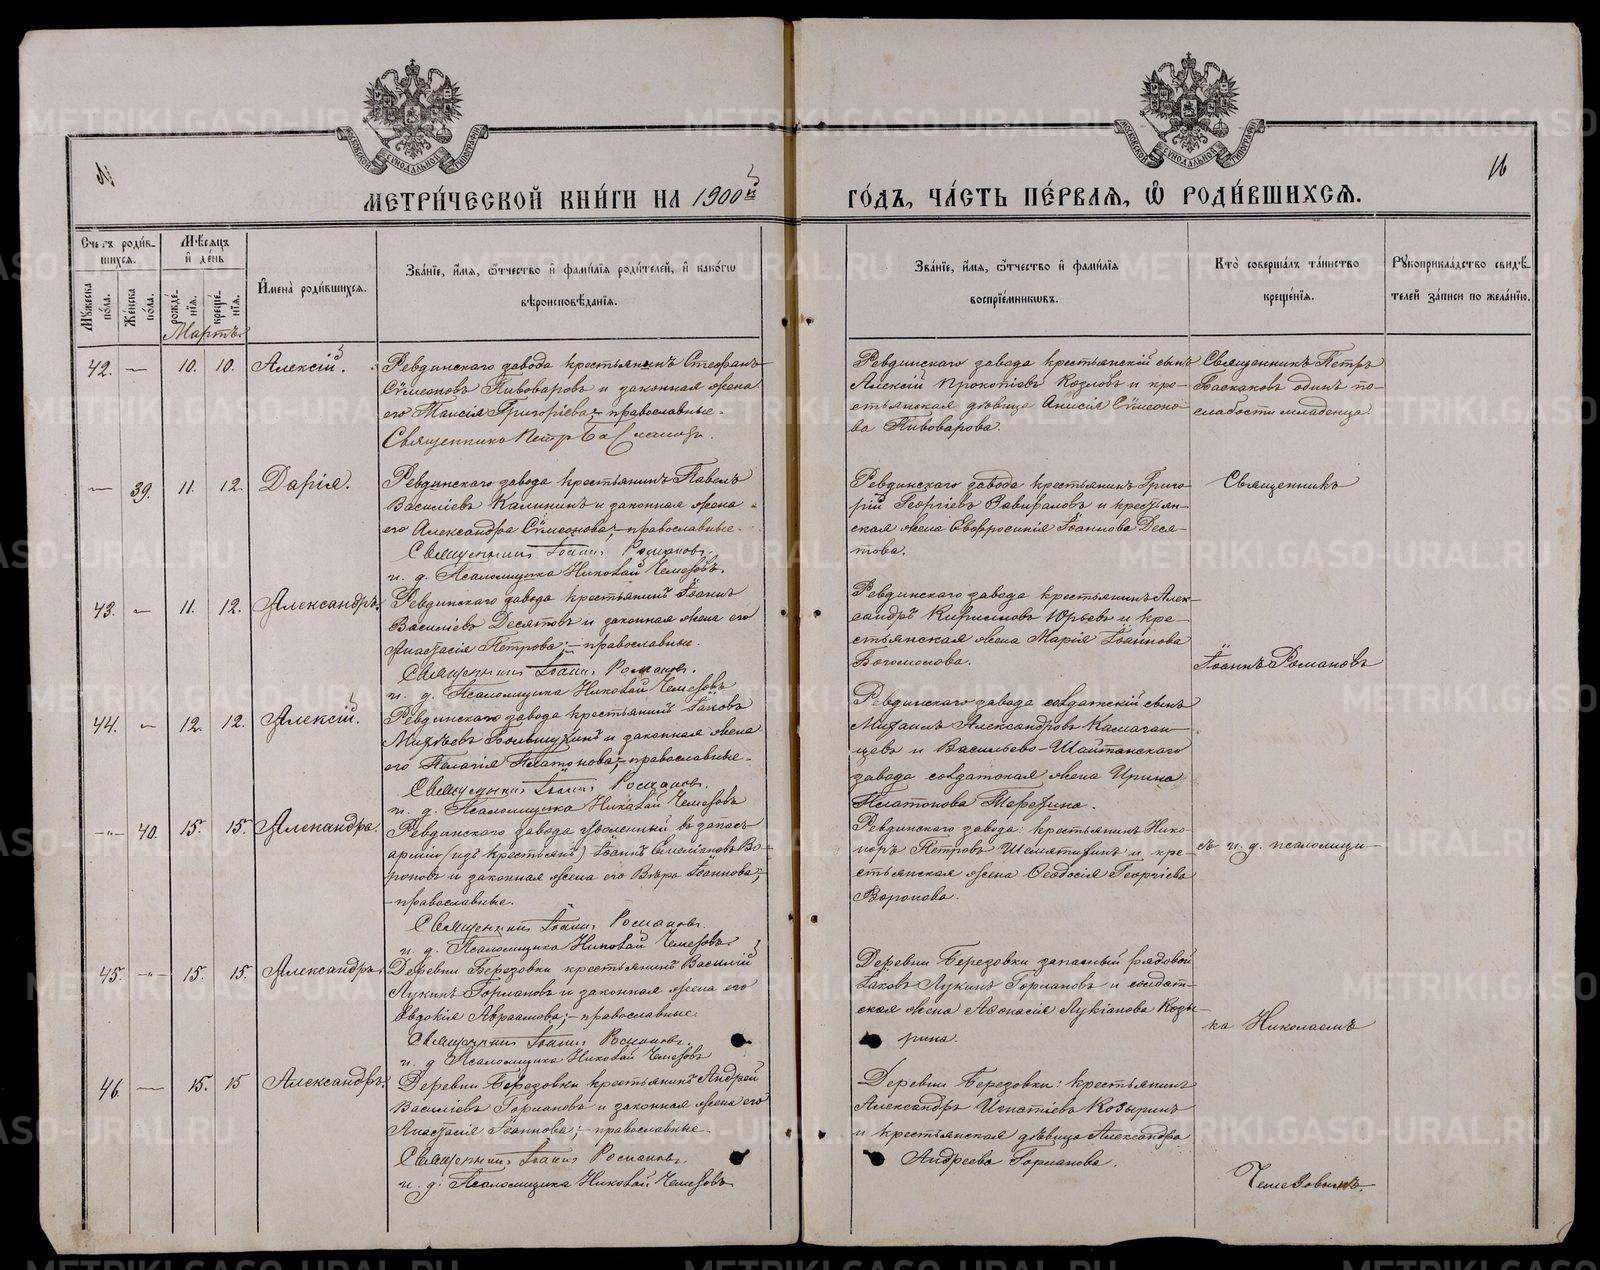 МЕТРИ́ЧЕСКОЙ КНИ́ГИ НА 1900й ГО́ДЪ, ЧА́СТЬ ПЕ́РВАЯ, Ѿ РОДИ́ВШИХСЯ.
16
Счетъ роди́в-
шихся.
Мѣсяцъ
и де́нь
Мужеска по́ла.
Же́нска по́ла.
рожде́нїя.
креще́нїя.
Мартъ
Имена̀ роди́вшихся.
Зва́нїе, и́мя, о́тчество и фами́лїя роди́телей, и како́гѡ
вѣроисповѣ́данїя.
Зва́нїе, и́мя, о́тчество и фами́лїя
воспрїе́мникѡвъ.
Кто̀ соверша́лъ та́инство
креще́нїя.
Рꙋкоприкла́дство свидѣ́-
телей за́писи по жела́нїю.
42. — 10. 10. Алексій.
Ревдинскаго завода крестьянинъ Стефанъ
Сѵмеоновъ Пивоваровъ и законная жена
его Таисія Григоріева; православные.
Священникъ Петръ Баскаковъ.
Ревдинскаго завода крестьянскій сынъ
Алексій Прокопіевъ Козловъ и кре-
стьянская дѣвица Анисія Сѵмеоно-
ва Пивоварова.
Священникъ Петръ
Баскаковъ одинъ по
слабости младенца.
— 39. 11. 12. Дарія.
Ревдинскаго завода крестьянинъ Павелъ
Василіевъ Калининъ и законная жена
его Александра Сѵмеонова; православные.
Священникъ Іоаннъ Романовъ.
и. д. Псаломщика Николай Чемезовъ.
Ревдинскаго завода крестьянинъ Григо-
рій Георгіевъ Завираловъ и крестьян-
ская жена Евфросинія Іоаннова Деся-
това.
Священникъ
43. — 11. 12. Александръ.
Ревдинскаго завода крестьянинъ Іоаннъ
Василіевъ Десятовъ и законная жена его
Анастасія Петрова; — православные.
Священникъ Іоаннъ Романовъ.
и. д. Псаломщика Николай Чемезовъ
Ревдинскаго завода крестьянинъ Алек-
сандръ Кириловъ Юрьевъ и кре-
стьянская жена Марія Іоаннова
Богомолова.
Іоаннъ Романовъ
44. — 12. 12. Алексій.
Ревдинскаго завода крестьянинъ Іаковъ
Матѳеевъ и законная жена
его Пелагія Платонова; — православные.
Священникъ Іоаннъ Романовъ.
и. д. Псаломщика Николай Чемезовъ
Ревдинскаго завода солдатскій сынъ
Михаилъ Александровъ Камаган-
цевъ и Васильево-Шайтанскаго
завода солдатская жена Ирина
Платонова
— 40. 15. 15. Алекандра.
Ревдинскаго завода уволенный въ запасъ
арміи (изъ крестьянъ) Іоаннъ Емеліановъ Во-
роновъ и законная жена его Вѣра Іоаннова; —
— православные.
Священникъ Іоаннъ Романовъ.
и. д. Псаломщика Николай Чемезовъ
Ревдинскаго завода: крестьянинъ Нико-
норъ Петровъ и кре-
стьянская жена Ѳеодосія Георгіева
Воронова.
съ и. д. псаломщи-
45. — 15. 15. Александръ.
Деревни Березовки крестьянинъ Василій
Лукинъ Гормановъ и законная жена его
Евдокія Авраамова; — православные.
Священникъ Іоаннъ Романовъ.
и. д. Псаломщика Николай Чемезовъ
Деревни Березовки запасный рядовой
Іаковъ Лукинъ Гормановъ и солдат-
ская жена Аѳанасія Лукіанова Козы-
рина.
ка Николаемъ
46. — 15. 15 Александръ.
Деревни Березовки крестьянинъ Андрей
Василіевъ Гормановъ и законная жена его
Анастасія Іоаннова; — православные.
Священникъ Іоаннъ Романовъ.
и. д. Псаломщика Николай Чемезовъ
Деревни Березовки: крестьянинъ
Александръ Игнатіевъ Козыринъ
и крестьянская дѣвица Александра
Андреева Горманова.
Чемезовымъ.
METRIKI.GASO-URAL.RU